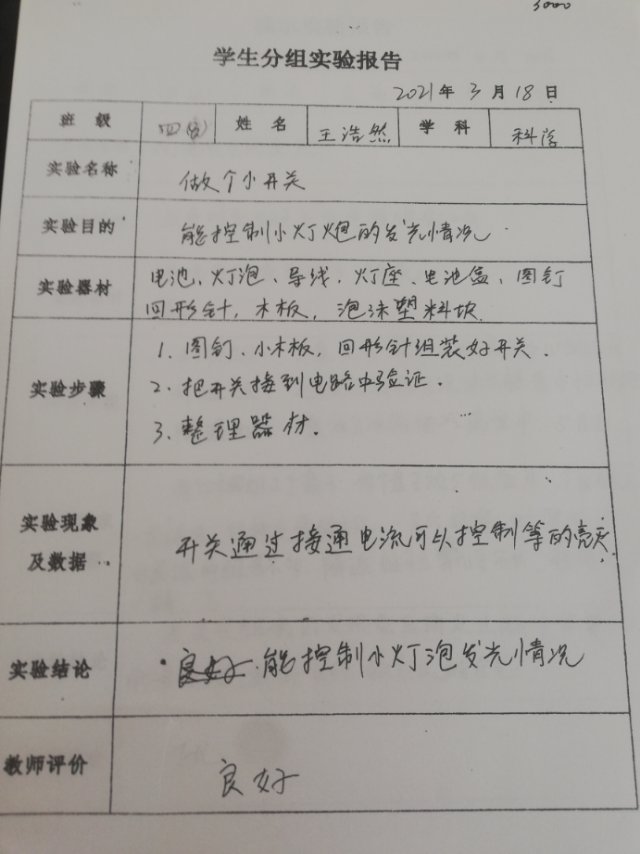 3000
学生分组实验报告
2021年3月18日
班 级 四 姓 名 王浩然 学 科 科学
实验名称 做个小开关
实验目的 能控制小灯炮的发光情况
实验器材 电池、灯泡、导线、灯座、电池盒、图钉
回形针,木板,泡沫塑料块
实验步骤 1、图钉、小木板,回形针组装好开关.
2、把开关接到电路中验证.
3、整理器材.
实验现象
及数据 开关通过接通电流可以控制等的亮灭
实验结论 能控制小灯泡发光情况
教师评价 良好